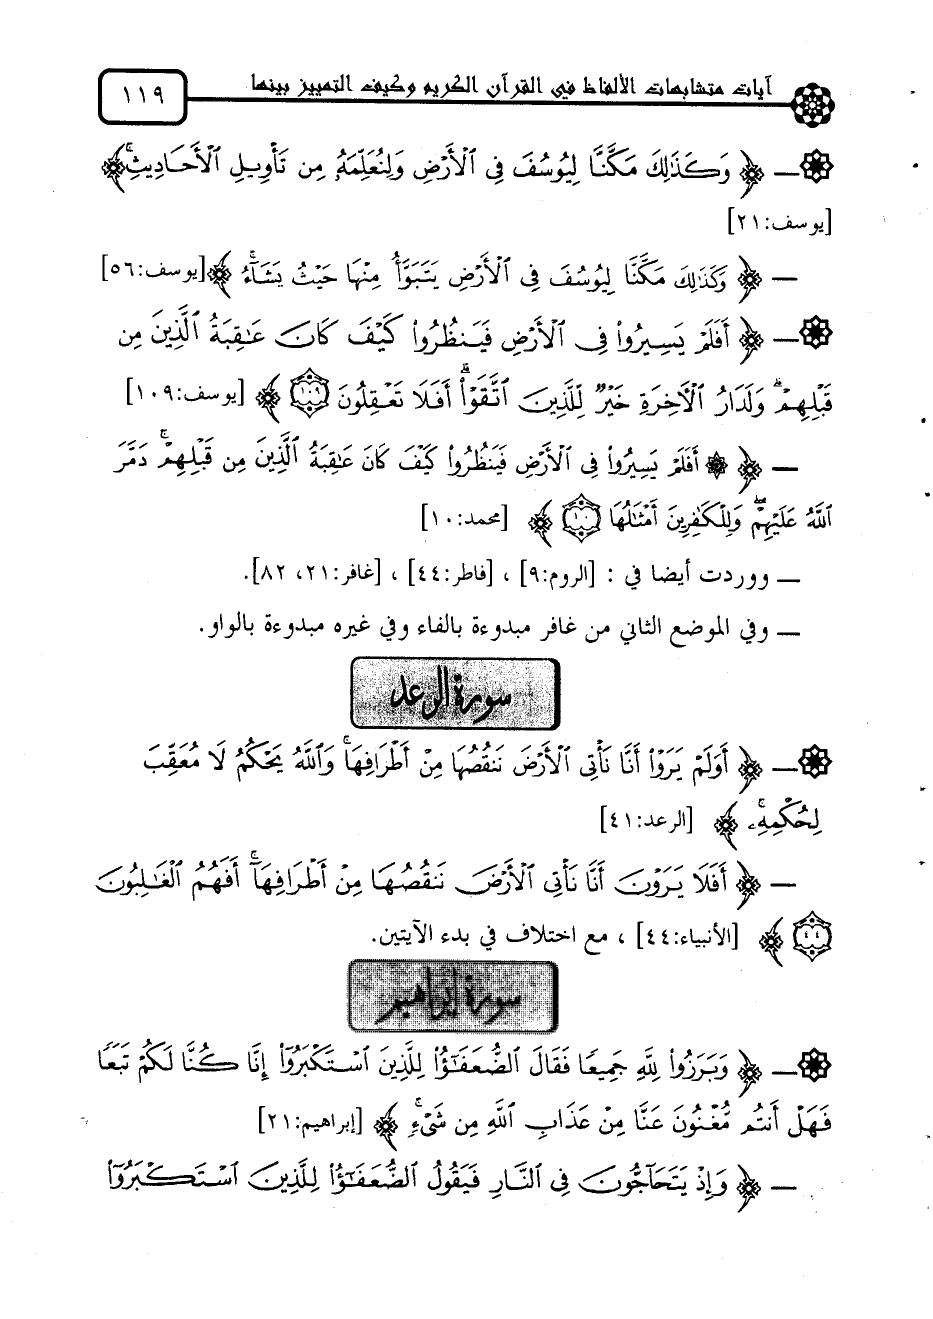 آيات متشابهات الألفاظ في القرآن الكريم وكيف التمييز بينها
١١٩
ـ ﴿ وَكَذَٰلِكَ مَكَّنَّا لِيُوسُفَ فِى ٱلْأَرْضِ وَلِنُعَلِّمَهُۥ مِن تَأْوِيلِ ٱلْأَحَادِيثِ ۚ ﴾
[يوسف:٢١]
ـ ﴿ وَكَذَٰلِكَ مَكَّنَّا لِيُوسُفَ فِى ٱلْأَرْضِ يَتَبَوَّأُ مِنْهَا حَيْثُ يَشَآءُ ۚ ﴾ [يوسف:٥٦]
ـ ﴿ أَفَلَمْ يَسِيرُوا۟ فِى ٱلْأَرْضِ فَيَنظُرُوا۟ كَيْفَ كَانَ عَٰقِبَةُ ٱلَّذِينَ مِن
قَبْلِهِمْ ۗ وَلَدَارُ ٱلْأَخِرَةِ خَيْرٌ لِّلَّذِينَ ٱتَّقَوْا۟ ۗ أَفَلَا تَعْقِلُونَ ١٠٩ ﴾ [يوسف:١٠٩]
ـ ﴿ ۞ أَفَلَمْ يَسِيرُوا۟ فِى ٱلْأَرْضِ فَيَنظُرُوا۟ كَيْفَ كَانَ عَٰقِبَةُ ٱلَّذِينَ مِن قَبْلِهِمْ ۚ دَمَّرَ
ٱللَّهُ عَلَيْهِمْ ۖ وَلِلْكَٰفِرِينَ أَمْثَٰلُهَا ١٠ ﴾ [محمد:١٠]
ـ ووردت أيضا في : [الروم:٩] ، [فاطر:٤٤] ، [غافر:٢١، ٨٢].
ـ وفي الموضع الثاني من غافر مبدوءة بالفاء وفي غيره مبدوءة بالواو.
سورة الرعد
ـ ﴿ أَوَلَمْ يَرَوْا۟ أَنَّا نَأْتِى ٱلْأَرْضَ نَنقُصُهَا مِنْ أَطْرَافِهَا ۚ وَٱللَّهُ يَحْكُمُ لَا مُعَقِّبَ
لِحُكْمِهِۦ ۚ ﴾ [الرعد:٤١]
ـ ﴿ أَفَلَا يَرَوْنَ أَنَّا نَأْتِى ٱلْأَرْضَ نَنقُصُهَا مِنْ أَطْرَافِهَآ ۚ أَفَهُمُ ٱلْغَٰلِبُونَ
٤٤ ﴾ [الأنبياء:٤٤] ، مع اختلاف في بدء الآيتين.
سورة إبراهيم
ـ ﴿ وَبَرَزُوا۟ لِلَّهِ جَمِيعًا فَقَالَ ٱلضُّعَفَٰٓؤُا۟ لِلَّذِينَ ٱسْتَكْبَرُوٓا۟ إِنَّا كُنَّا لَكُمْ تَبَعًا
فَهَلْ أَنتُم مُّغْنُونَ عَنَّا مِنْ عَذَابِ ٱللَّهِ مِن شَىْءٍ ۚ ﴾ [إبراهيم:٢١]
ـ ﴿ وَإِذْ يَتَحَآجُّونَ فِى ٱلنَّارِ فَيَقُولُ ٱلضُّعَفَٰٓؤُا۟ لِلَّذِينَ ٱسْتَكْبَرُوٓا۟